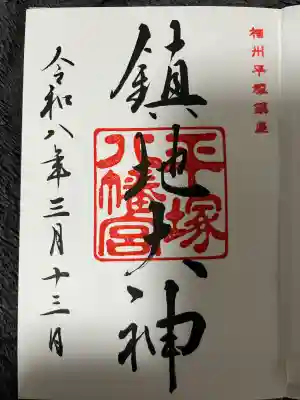 相州平塚鎮座
鎮地大神
平塚八幡宮
令和八年三月十三日